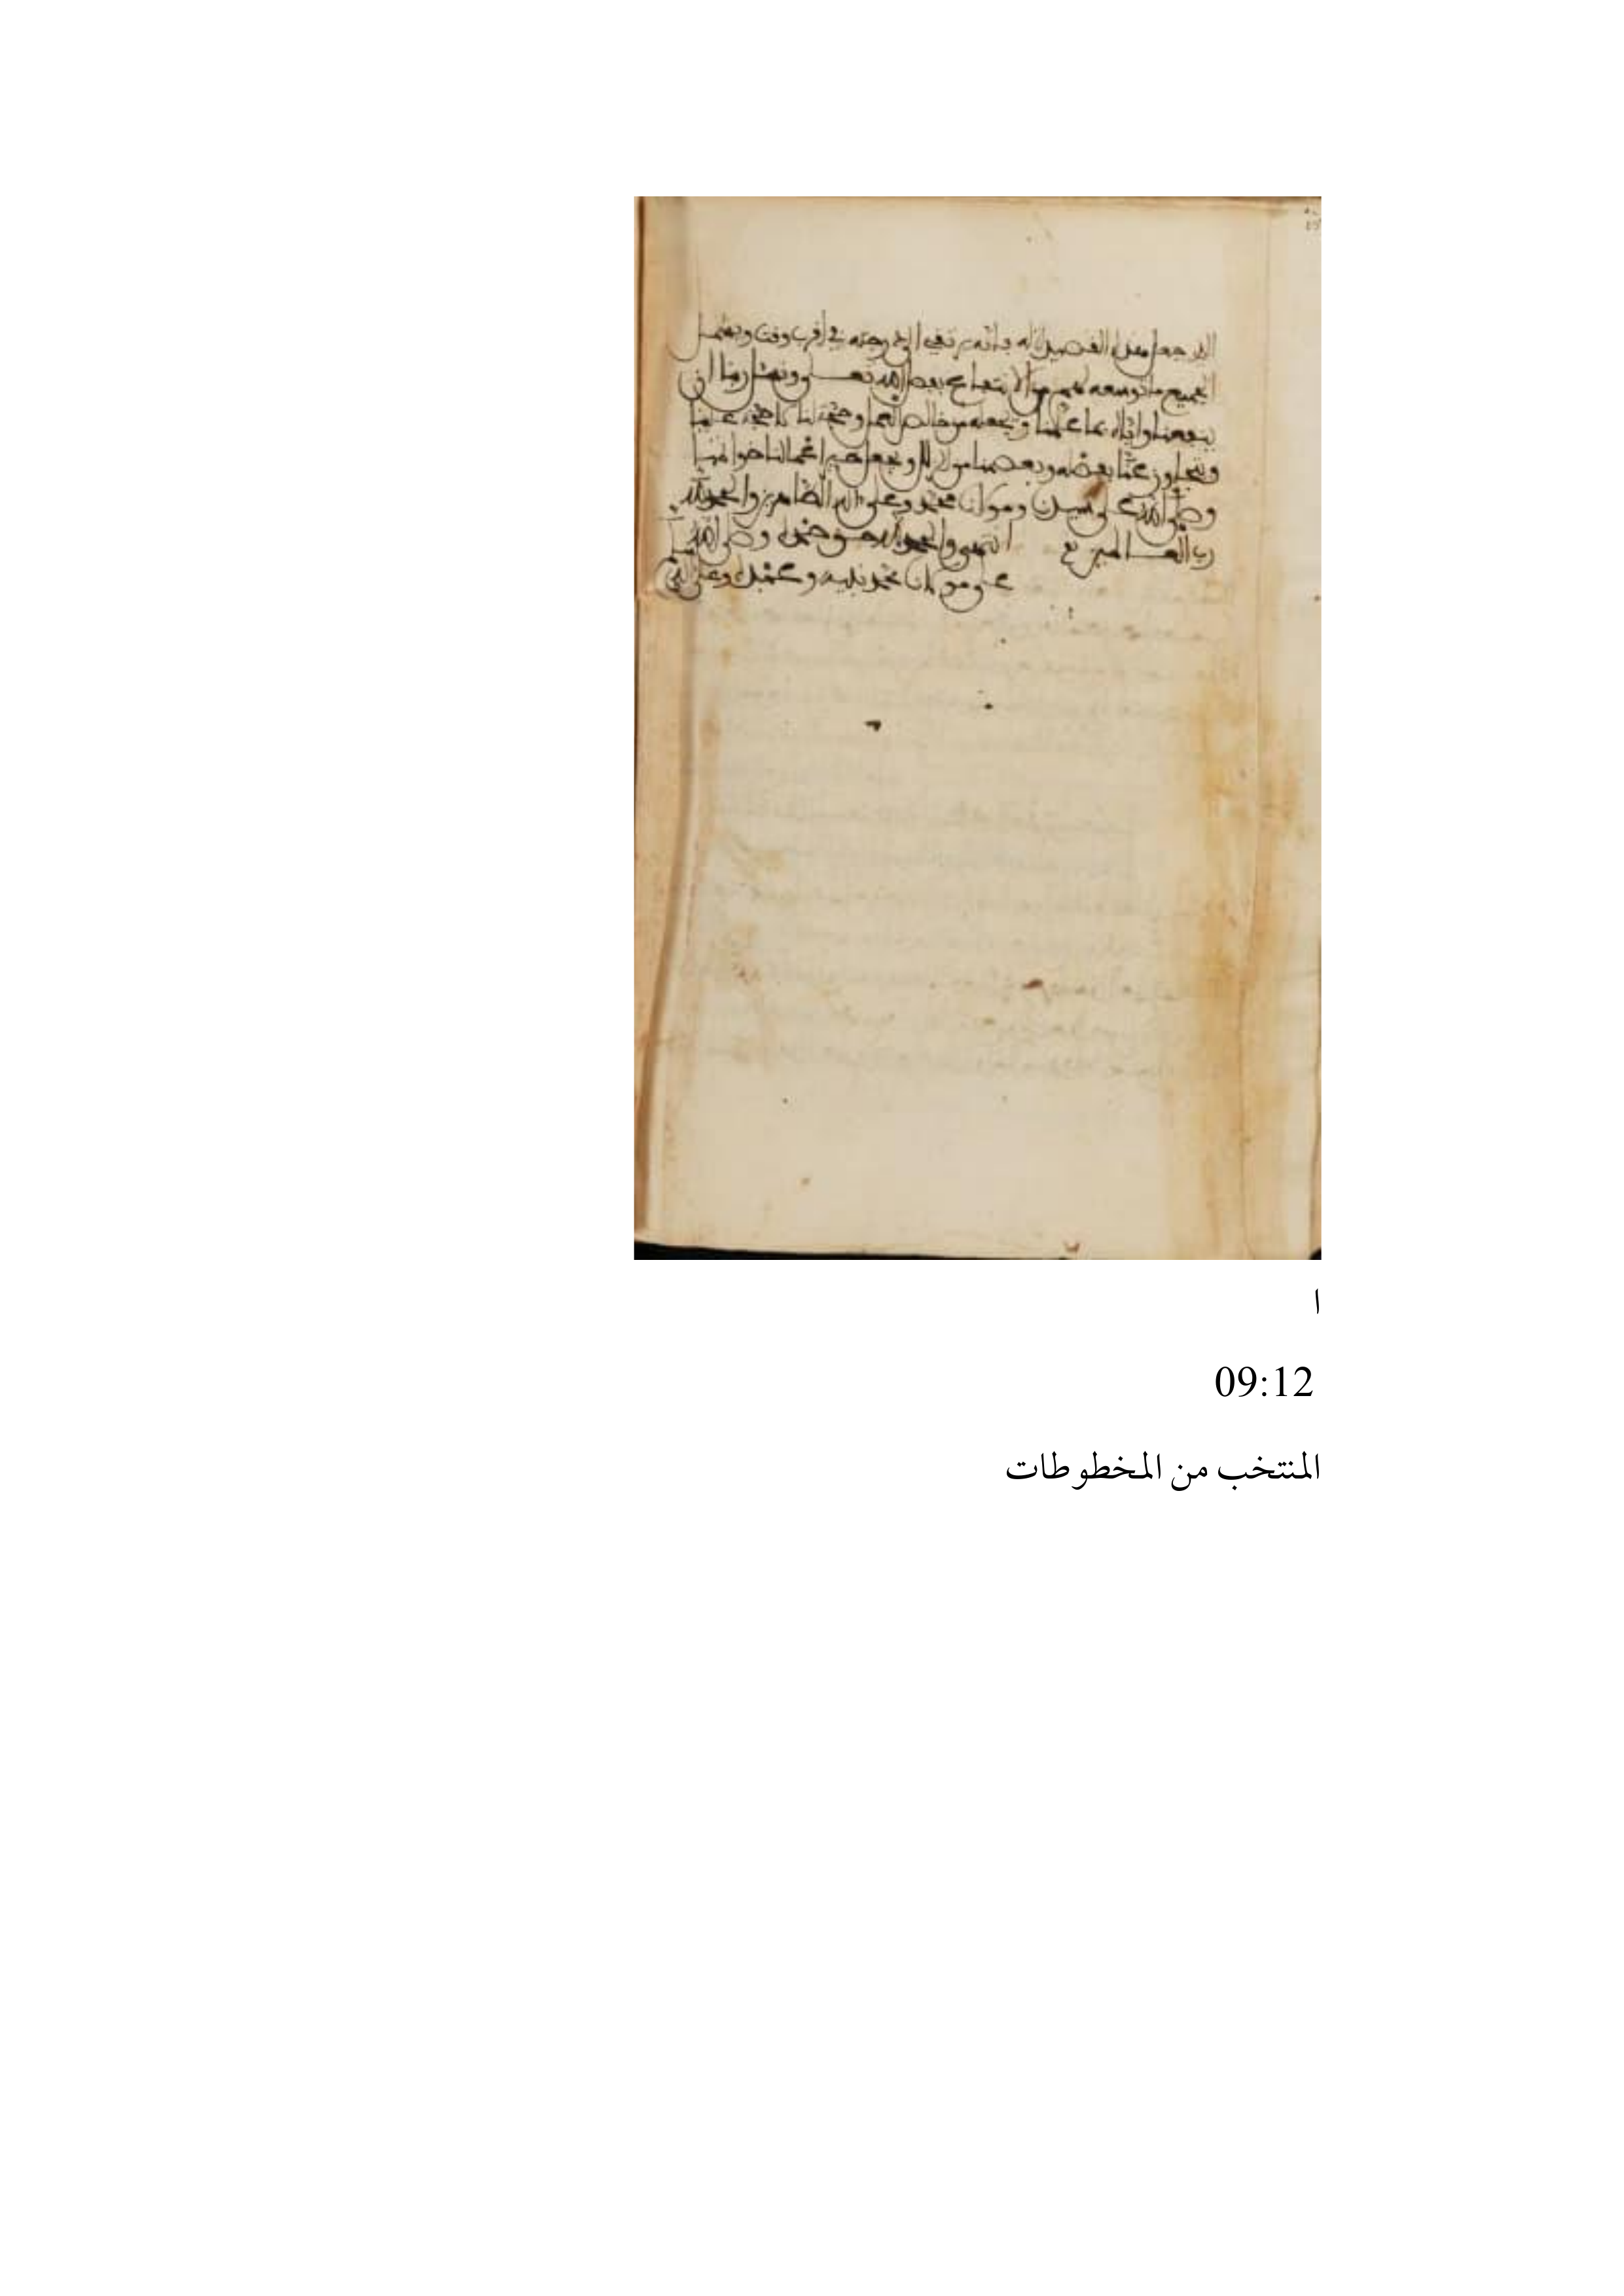 الله جعل هذا القصد لله فإنه يرتقي الى درجته في اقرب وقت ويحصل
الجميع ما نوسعه لهم من الانتفاع بفضل الله تعلى ونسئل ربنا ان
ينفعنا واياه بما علمنا ويجعله من خالص العمل وحجة لنا لا حجة علينا
ويتجاوز عنا بفضله ويعصمنا من الزلل ويجعل خير اعمالنا خواتمها
وصلى الله على سيدنا ومولانا محمد وعلى اله الطاهرين والحمد لله
رب العالمين انتهى والحمد لله حق حمده وصلى الله
على مولانا محمد نبيه وعبده وعلى
ا
09:12
المنتخب من المخطوطات